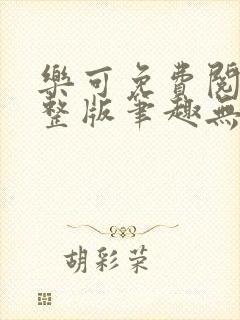 樂可免費閱
整版筆趣無
胡彩荣